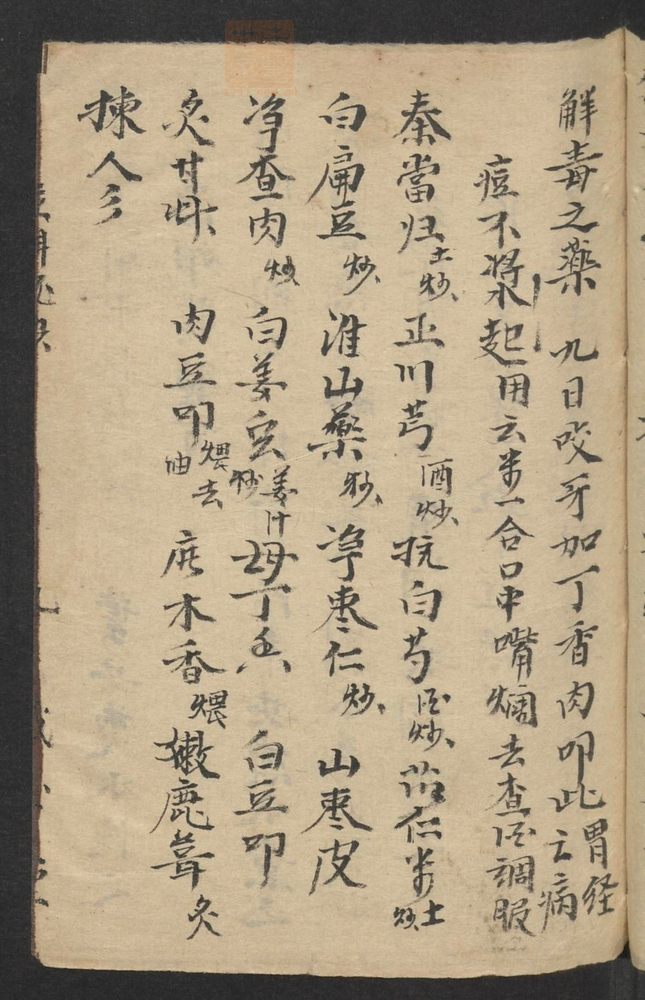 解毒之薬 九日咬牙加丁香肉叩此亡胃経病
痘不漿起用云米一合口中嘴爛去查酒調服
秦當归土炒 正川芎酒炒 抗白芍酒炒 苡仁米土炒
白扁豆炒 淮山藥炒 淨枣仁炒 山枣皮
净查肉炒 白姜蚕姜汁炒 母丁香 白豆叩
炙甘草 肉豆叩煨去油 広木香煨 嫩鹿茸炙
揀人参